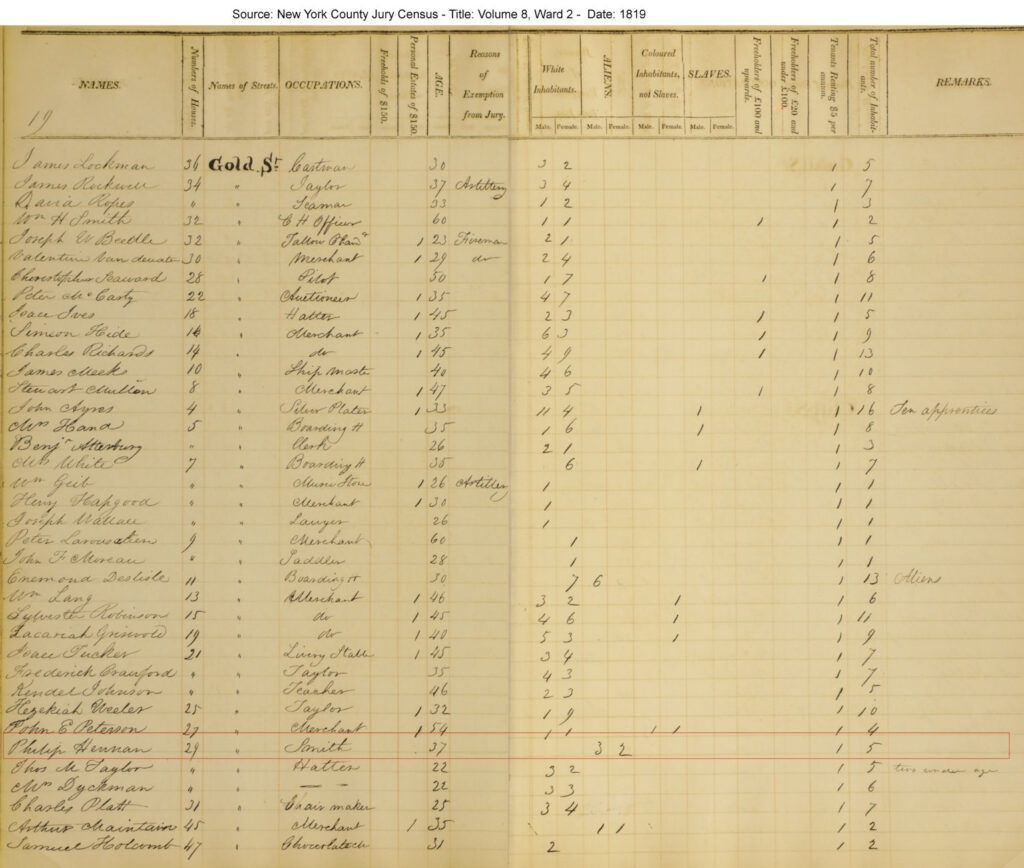 Source: New York County Jury Census - Title: Volume 8, Ward 2 - Date: 1819
NAMES. Numbers of Houses. Names of Streets. OCCUPATIONS. Freeholds of $150. Personal Estates of $150. AGE. Reasons of Exemption from Jury. White Inhabitants. ALIENS. Coloured Inhabitants, not Slaves. SLAVES. Freeholders of £100 and upwards. Freeholders of £20 and under £100. Tenants Renting $5 per annum. Total number of Inhabitants. REMARKS.
Male. Female. Male. Female. Male. Female. Male. Female.
19
James Lockman 36 Gold St Cartman 30 3 2 1 5
James Rockwell 34 " Taylor 37 Artillery 3 4 1 7
David Ropes " " Seaman 33 1 2 1 3
Wm H Smith 32 " C H Officer 60 1 1 1 1 2
Joseph W Beedle 32 " Tallow Chanr 1 23 Fireman 2 1 1 5
Valentine Van 30 " Merchant 1 29 do 2 4 1 6
Seaward 28 " Pilot 50 1 7 1 1 8
Peter McCarty 22 " Auctioneer 1 35 4 7 1 11
Isaac Ives 18 " Hatter 1 45 2 3 1 1 5
Simeon Hide 16 " Merchant 1 35 6 3 1 1 9
Charles Richards 14 " do 1 45 4 9 1 1 13
James Meeks 10 " Ship Maste 40 4 6 1 10
Stewart Mullen 8 " Merchant 1 47 3 5 1 1 8
John Ayres 4 " Silver Plater 1 33 11 4 1 1 16 Ten apprentices
Mrs Hand 5 " Boarding H 35 1 6 1 1 8
Benjn Atterburg " " Clerk 26 2 1 1 3
Mrs White 7 " Boarding H 35 6 1 1 7
Wm Geib " " Music Store 1 26 Artillery 1 1 1
Henry Hapgood " " Merchant 1 30 1 1 1
Joseph Wallace " " Lawyer 26 1 1 1
Peter 9 " Merchant 60 1 1 1
John F Moreau " " Saddler 28 1 1 1
Enemond Deslisle 11 " Boarding H 30 7 6 1 13 Aliens
Wm Lang 13 " Merchant 1 46 3 2 1 1 6
Sylvester Robinson 15 " do 1 45 4 6 1 1 11
Zacariah Griswold 19 " do 1 40 5 3 1 1 9
Isaac Tucker 21 " Livery Stable 1 45 3 4 1 7
Frederick Crauford " " Taylor 35 4 3 1 7
Kendel Johnson " " Teacher 46 2 3 1 5
Hezekiah Weeler 25 " Taylor 1 32 1 9 1 10
John E Peterson 27 " Merchant 1 54 1 1 1 1 1 4
Philip Hennan 29 " Smith 37 3 2 1 5
Thos M Taylor " " Hatter 22 3 2 1 5 two under age
Mrs Dyckman " " — — 22 3 3 1 6
Charles Platt 31 " Chair maker 25 3 4 1 7
Arthur Maintain 45 " Merchant 1 35 1 1 1 2
Samuel Holcomb 47 " 31 2 1 2